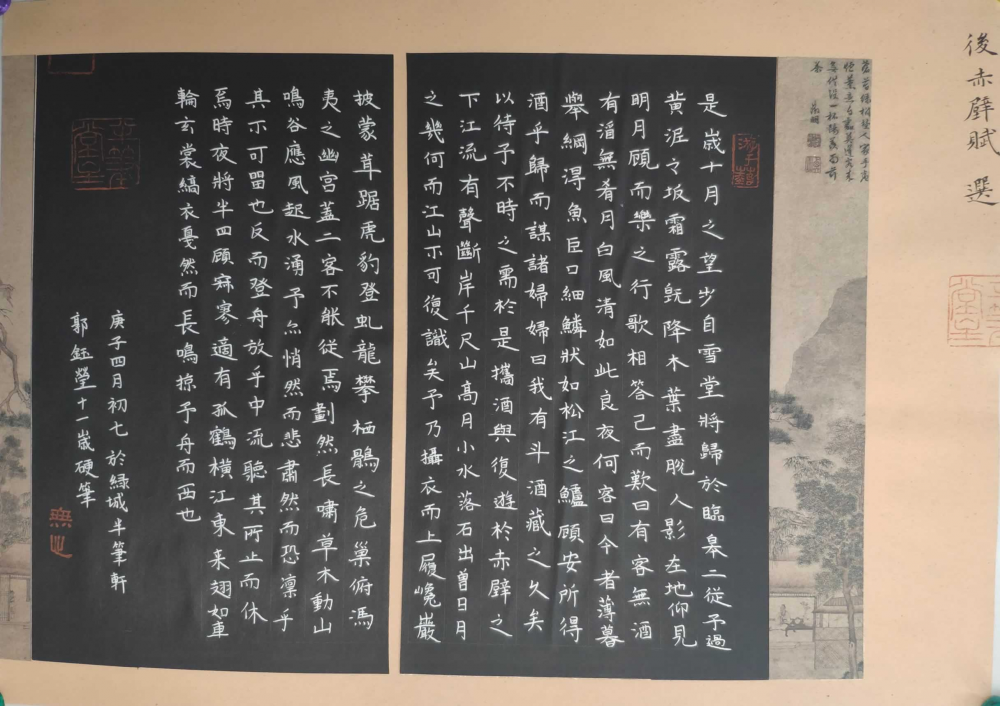 後赤壁賦 選
是歲十月之望步自雪堂將歸於臨皋二從予過
黃泥之坂霜露既降木葉盡脫人影在地仰見
明月顧而樂之行歌相答已而歎曰有客無酒
有酒無肴月白風清如此良夜何客曰今者薄暮
舉網得魚巨口細鱗狀如松江之鱸顧安所得
酒乎歸而謀諸婦婦曰我有斗酒藏之久矣
以待子不時之需於是攜酒與復遊於赤壁之
下江流有聲斷岸千尺山高月小水落石出曾日月
之幾何而江山不可復識矣予乃攝衣而上履巉巖
披蒙茸踞虎豹登虬龍攀栖鶻之危巢俯馮
夷之幽宮蓋二客不能從焉劃然長嘯草木動山
鳴谷應風起水涌予亦悄然而悲肅然而恐凜乎
其不可留也反而登舟放乎中流聽其所止而休
焉時夜將半四顧寂寥適有孤鶴橫江東來翅如車
輪玄裳縞衣戛然而長鳴掠予舟而西也
庚子四月初七於綠城半筆軒
郭鈺瑩十一歲硬筆